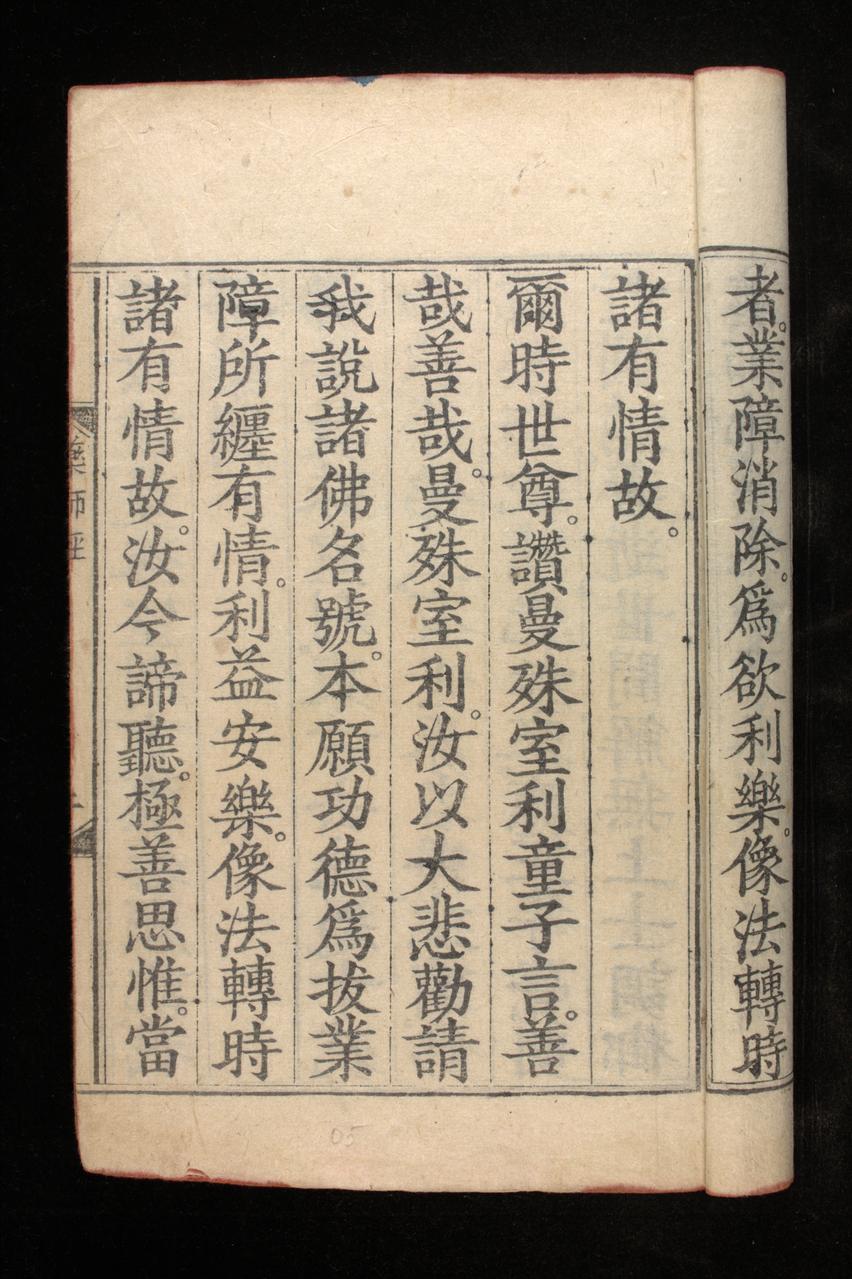 者。業障消除。爲欲利樂。像法轉時
諸有情故。
爾時世尊。讚曼殊室利童子言。善
哉善哉。曼殊室利。汝以大悲勸請
我說諸佛名號。本願功德爲拔業
障所纒有情。利益安樂。像法轉時
諸有情故。汝今諦聽。極善思惟。當
藥師經
05